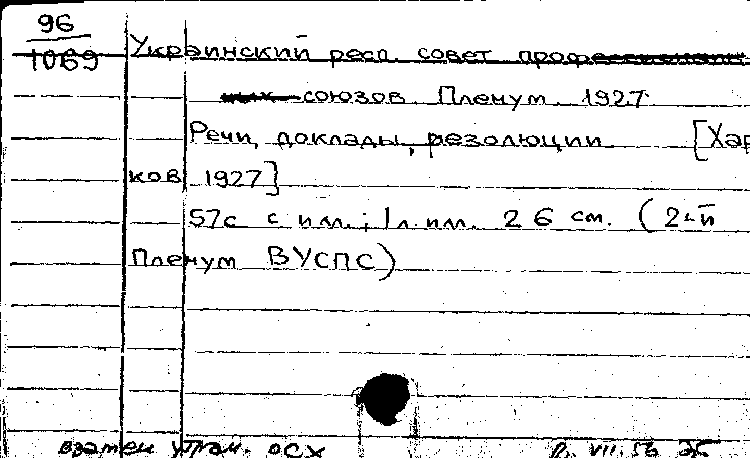 96
1069
Украинский респ. совет профессиональ
ных союзов. Пленум. 1927.
Речи, доклады, резолюции [Хар
ков 1927]
57с с илл.; 1 л. илл. 26 см. (2-й
Пленум ВУСПС)
взамен утрач. осх
VII.56